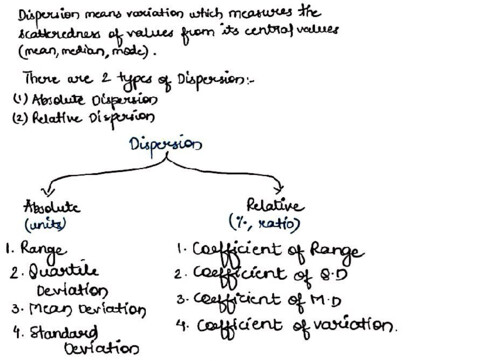 Dispersion means variation which measures the
scatteredness of values from its central values
(mean, median, mode).
There are 2 types of Dispersion:-
(1) Absolute Dispersion
(2) Relative Dispersion
Dispersion
Absolute
(units)
1. Range
2. Quartile
Deviation
3. Mean Deviation
4. Standard
Deviation
Relative
(%, ratio)
1. Coefficient of Range
2. Coefficient of Q.D
3. Coefficient of M.D
4. Coefficient of variation.